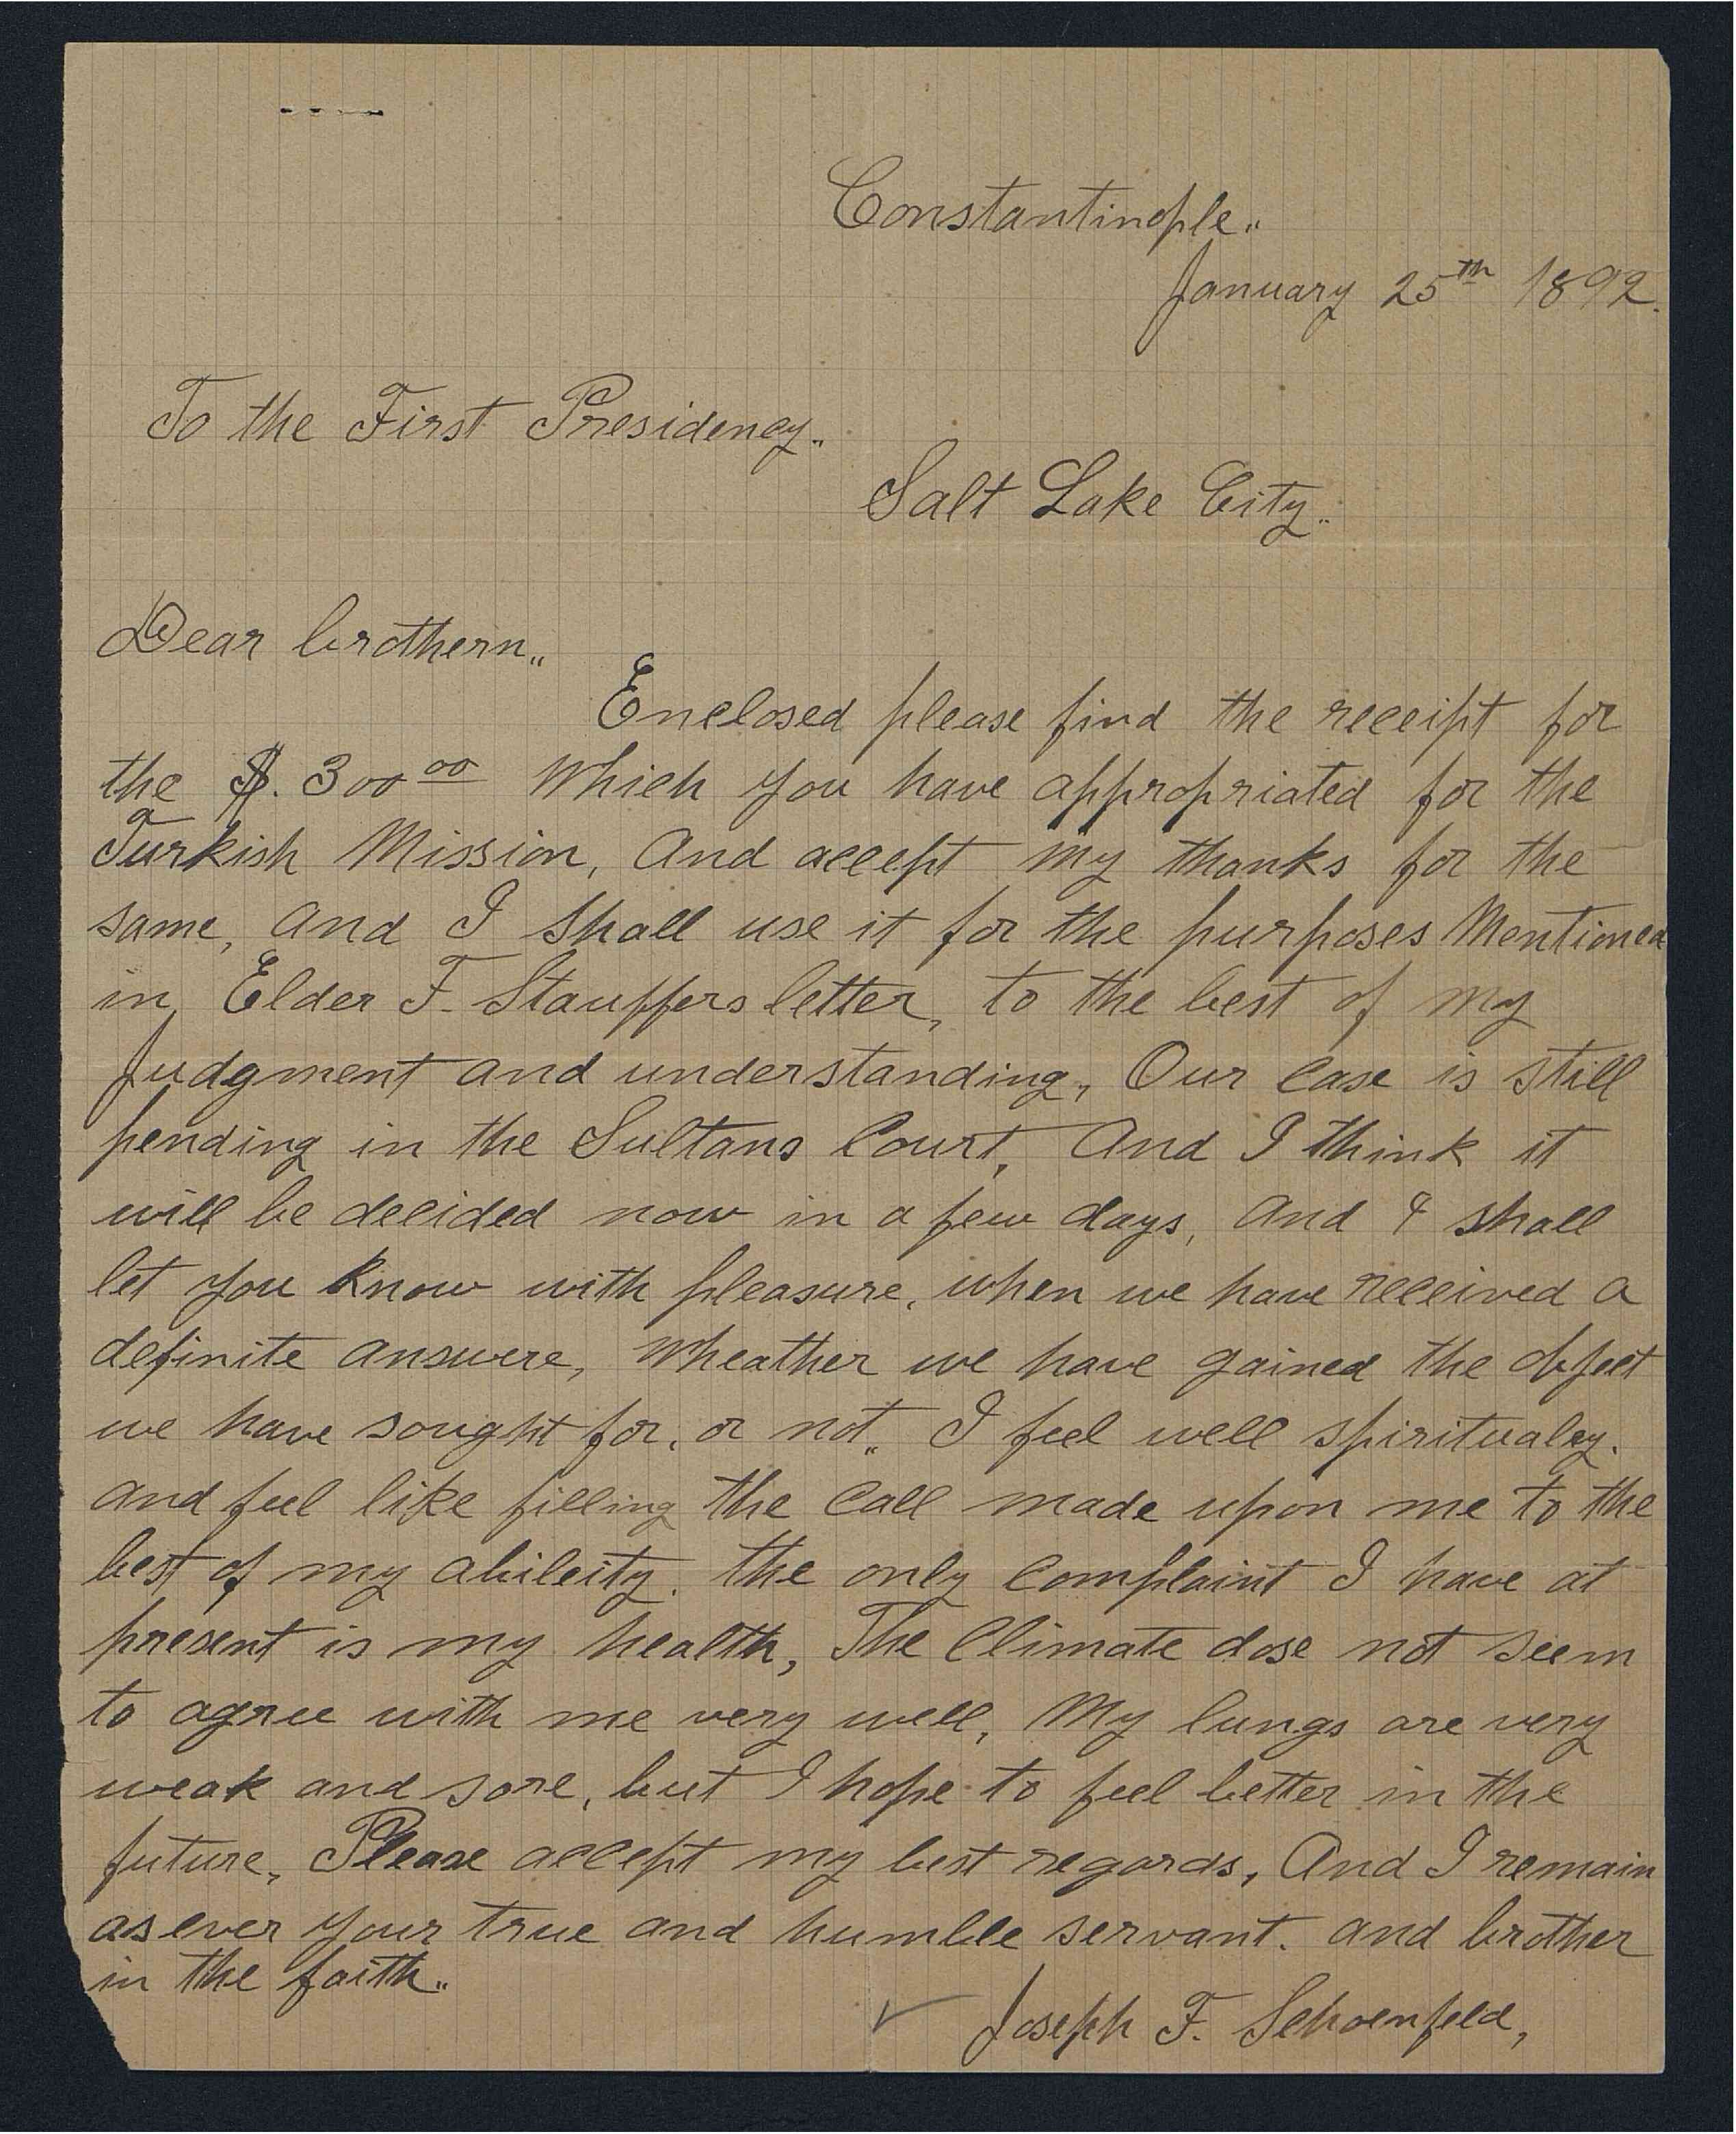 Constantinople.
January 25th 1892.
To the First Presidency.
Salt Lake City.
Dear brothern.
Enclosed please find the receipt for
the $. 300 00 which you have appropriated for the
Turkish Mission, And accept my thanks for the
same, and I shall use it for the purposes Mentioned
in Elder F. Stauffers letter, to the best of my
Judgment and understanding, Our case is still
pending in the Sultans Court, And I think it
will be decided now in a few days, and I shall
let you know with pleasure, when we have received a
definite answere, wheather we have gained the object
we have sought for, or not. I feel well spiritualey.
and feel like filling the call made upon me to the
best of my abileity. the only complaint I have at
present is my health, The Climate dose not seem
to agree with me very well, My lungs are very
weak and sore, but I hope to feel better in the
future, Please accept my best regards, And I remain
as ever your true and humble servant. and brother
in the faith.
Joseph F. Schoenfeld,